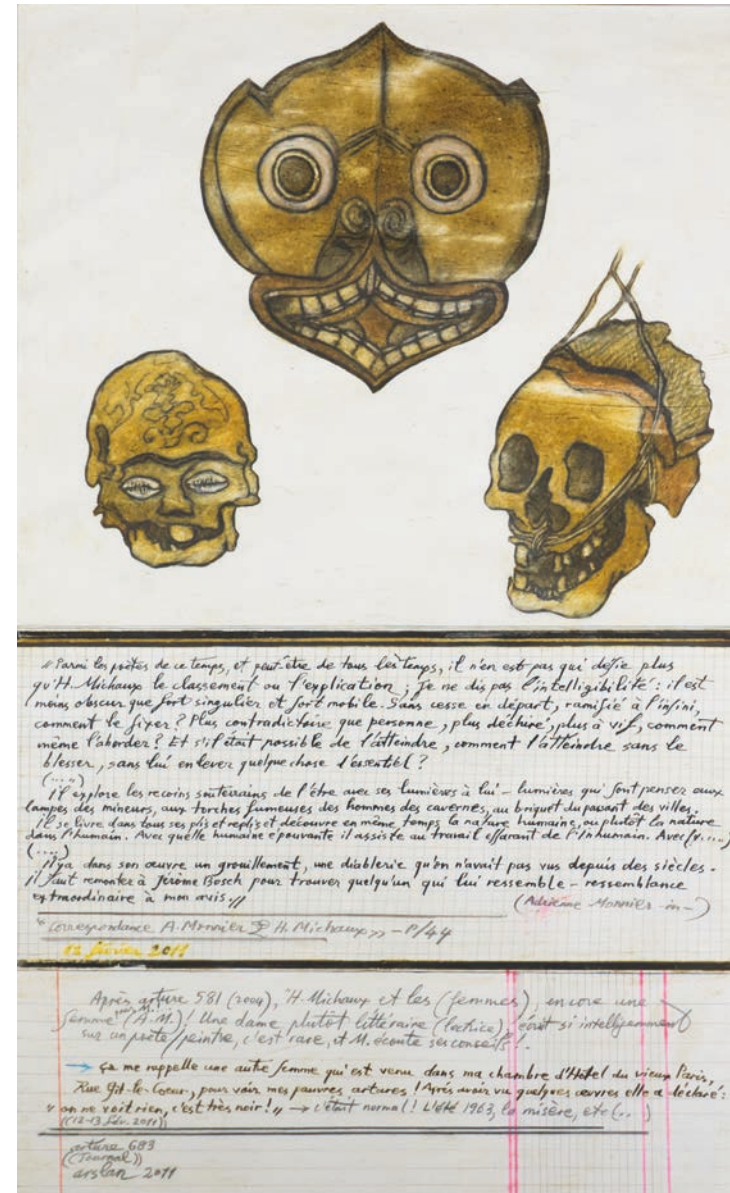 « Parmi les poètes de ce temps, et peut-être de tous les temps, il n'en est pas qui défie plus
qu'H. Michaux le classement ou l'explication, je ne dis pas l'intelligibilité : il est
moins obscur que fort singulier et fort mobile. Sans cesse en départ, ramifié à l'infini,
comment le fixer ? Plus contradictoire que personne, plus déchiré, plus à vif, comment
même l'aborder ? Et s'il était possible de l'atteindre, comment l'atteindre sans le
blesser, sans lui enlever quelque chose d'essentiel ?
(....)
Il explore les recoins souterrains de l'être avec ses lumières à lui – lumières qui font penser aux
lampes des mineurs, aux torches fumeuses des hommes des cavernes, au briquet du passant des villes.
Il se livre dans tous ses plis et replis et découvre en même temps la nature humaine, ou plutôt la nature
dans l'humain. Avec quelle humaine épouvante il assiste au travail effarant de l'inhumain. Avec (....)
(....)
Il y a dans son œuvre un grouillement, une diablerie qu'on n'avait pas vus depuis des siècles.
Il faut remonter à Jérôme Bosch pour trouver quelqu'un qui lui ressemble – ressemblance
extraordinaire à mon avis. »
(Adrienne Monnier – in –)
« Correspondance A. Monnier & H. Michaux » – P/44
février 2011
Après arture 581 (2009), "H. Michaux et les (femmes), encore une
femme" (A.M.) ! Une dame, plutôt littéraire (lectrice), écrit si intelligemment
sur un poète/peintre, c'est rare, et M. écoute ses conseils !.
→ ça me rappelle une autre femme qui est venu dans ma chambre d'Hôtel du vieux Paris,
Rue Gît-le-Coeur, pour voir mes pauvres artures ! Après avoir vu quelques œuvres elle a déclaré :
« on ne voit rien, c'est très noir ! » → c'était normal ! L'été 1963, la misère, etc (..)
(12-13 fév. 2011)
arture 683
(Journal)
arslan 2011